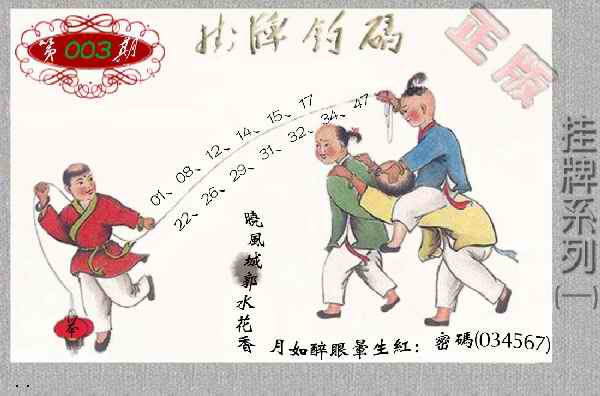 第003期
掛牌釣碼
正版
01、08、12、14、15、17
22、26、29、31、32、34、47
曉風城郭水花香
月如醉眼暈生紅：密碼(034567)
挂牌系列(一)